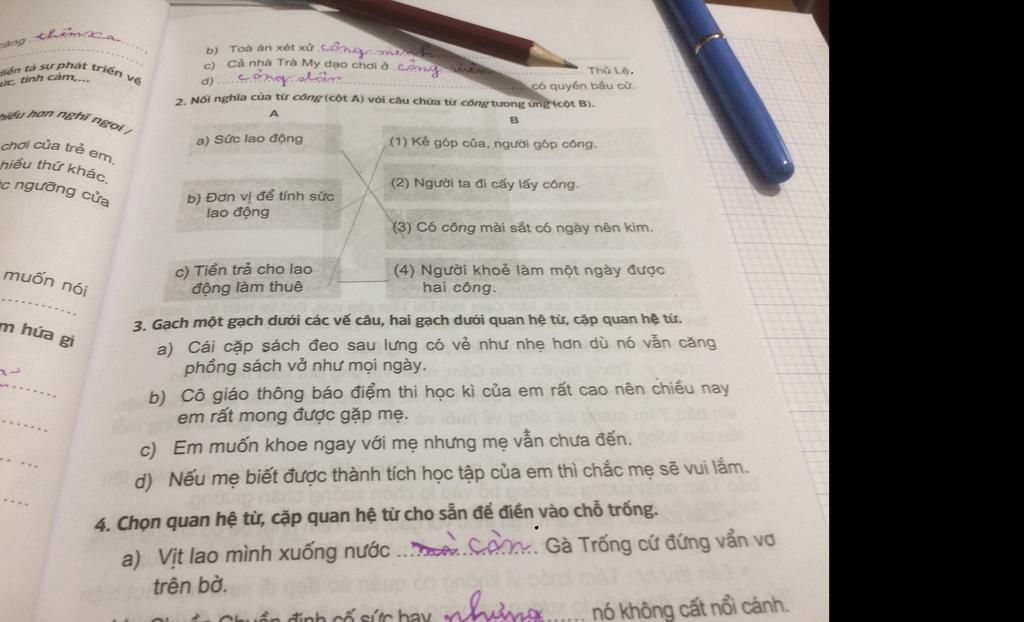 càng thêm xa
diễn tả sự phát triển về
ức, tình cảm,...
hiếu hơn nghĩ ngợi /
chơi của trẻ em.
hiều thứ khác.
c ngưỡng cửa
muốn nói
m hứa gì
b) Toà án xét xử công minh
c) Cả nhà Trà My dạo chơi ở công viên Thủ Lệ.
d) công dân có quyền bầu cử.
2. Nối nghĩa của từ công (cột A) với câu chứa từ công tương ứng (cột B).
A B
a) Sức lao động
(1) Kẻ góp của, người góp công.
(2) Người ta đi cấy lấy công.
b) Đơn vị để tính sức
lao động
(3) Có công mài sắt có ngày nên kim.
c) Tiền trả cho lao
động làm thuê
(4) Người khoẻ làm một ngày được
hai công.
3. Gạch một gạch dưới các vế câu, hai gạch dưới quan hệ từ, cặp quan hệ từ.
a) Cái cặp sách đeo sau lưng có vẻ như nhẹ hơn dù nó vẫn căng
phồng sách vở như mọi ngày.
b) Cô giáo thông báo điểm thi học kì của em rất cao nên chiều nay
em rất mong được gặp mẹ.
c) Em muốn khoe ngay với mẹ nhưng mẹ vẫn chưa đến.
d) Nếu mẹ biết được thành tích học tập của em thì chắc mẹ sẽ vui lắm.
4. Chọn quan hệ từ, cặp quan hệ từ cho sẵn để điền vào chỗ trống.
a) Vịt lao mình xuống nước ...mà còn... Gà Trống cứ đứng vẩn vơ
trên bờ.
định cố sức bay nhưng...... nó không cất nổi cánh.